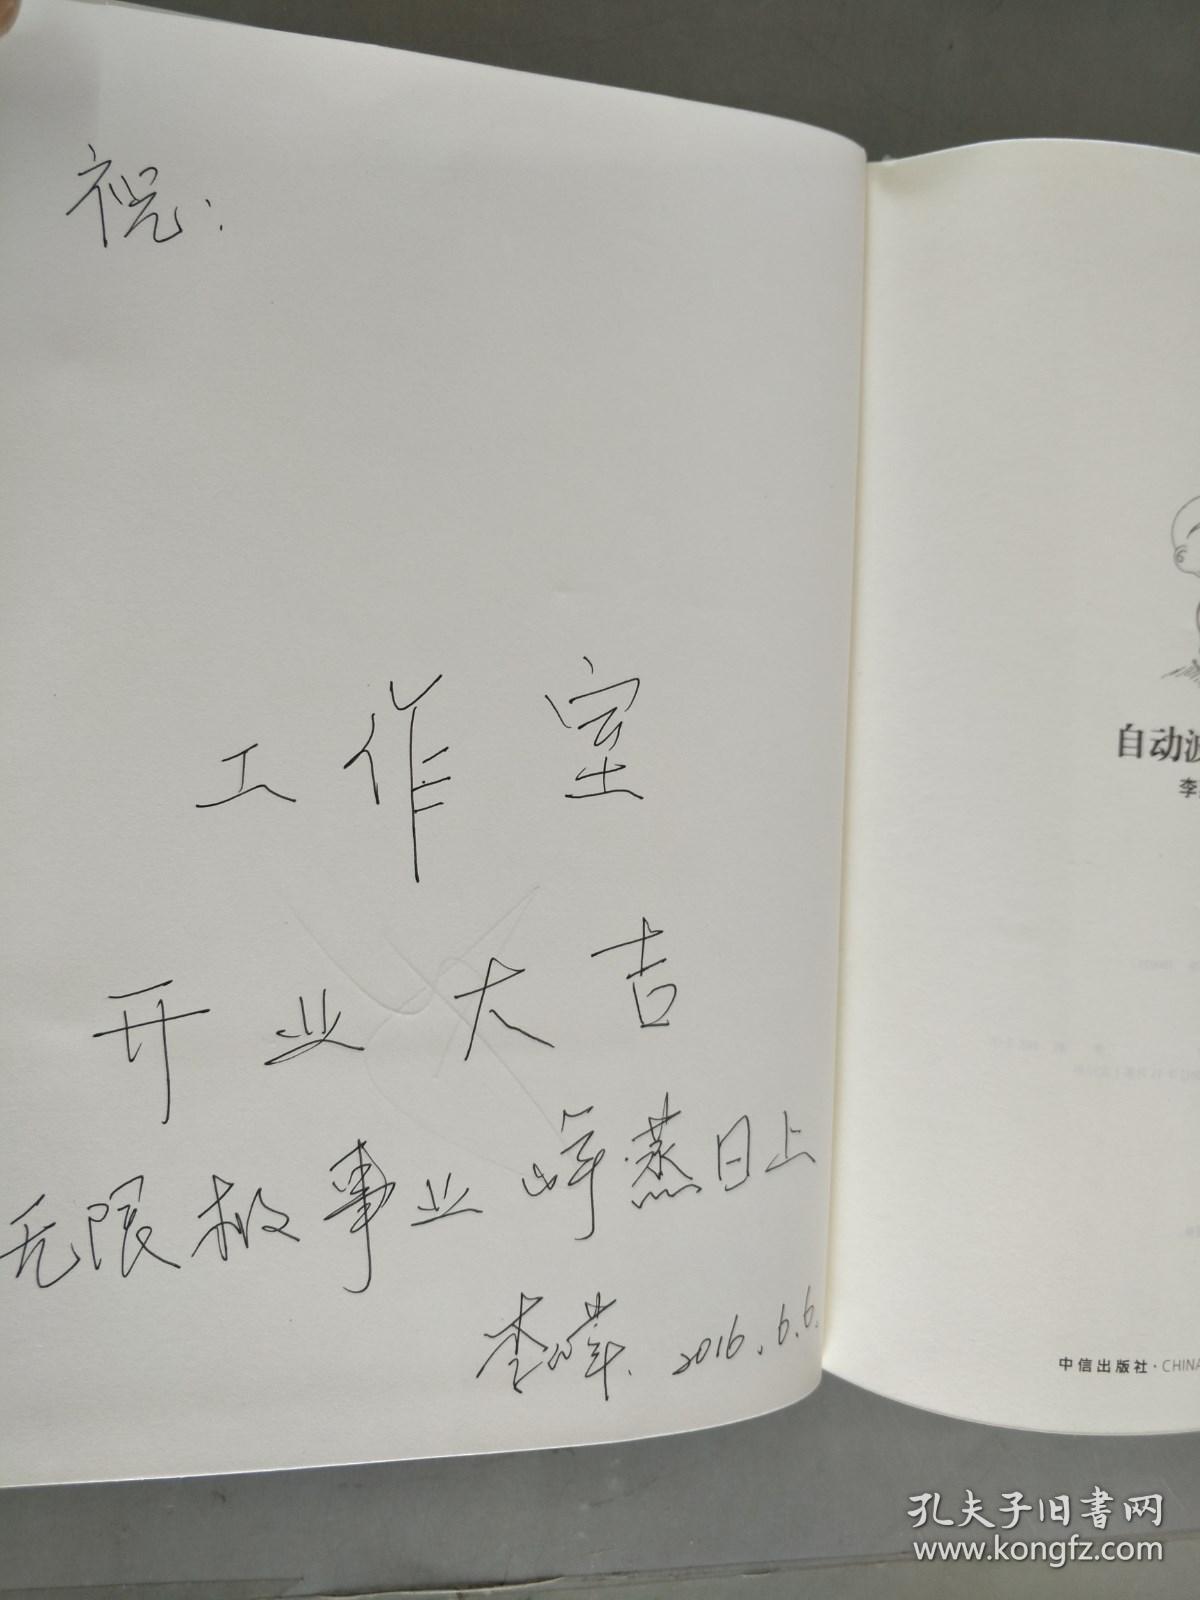 祝：
工作室
开业大吉
无限极事业峥蒸日上
李嵘 2016.6.6.
自动波
李
中信出版社·CHINA
孔夫子旧书网
www.kongfz.com